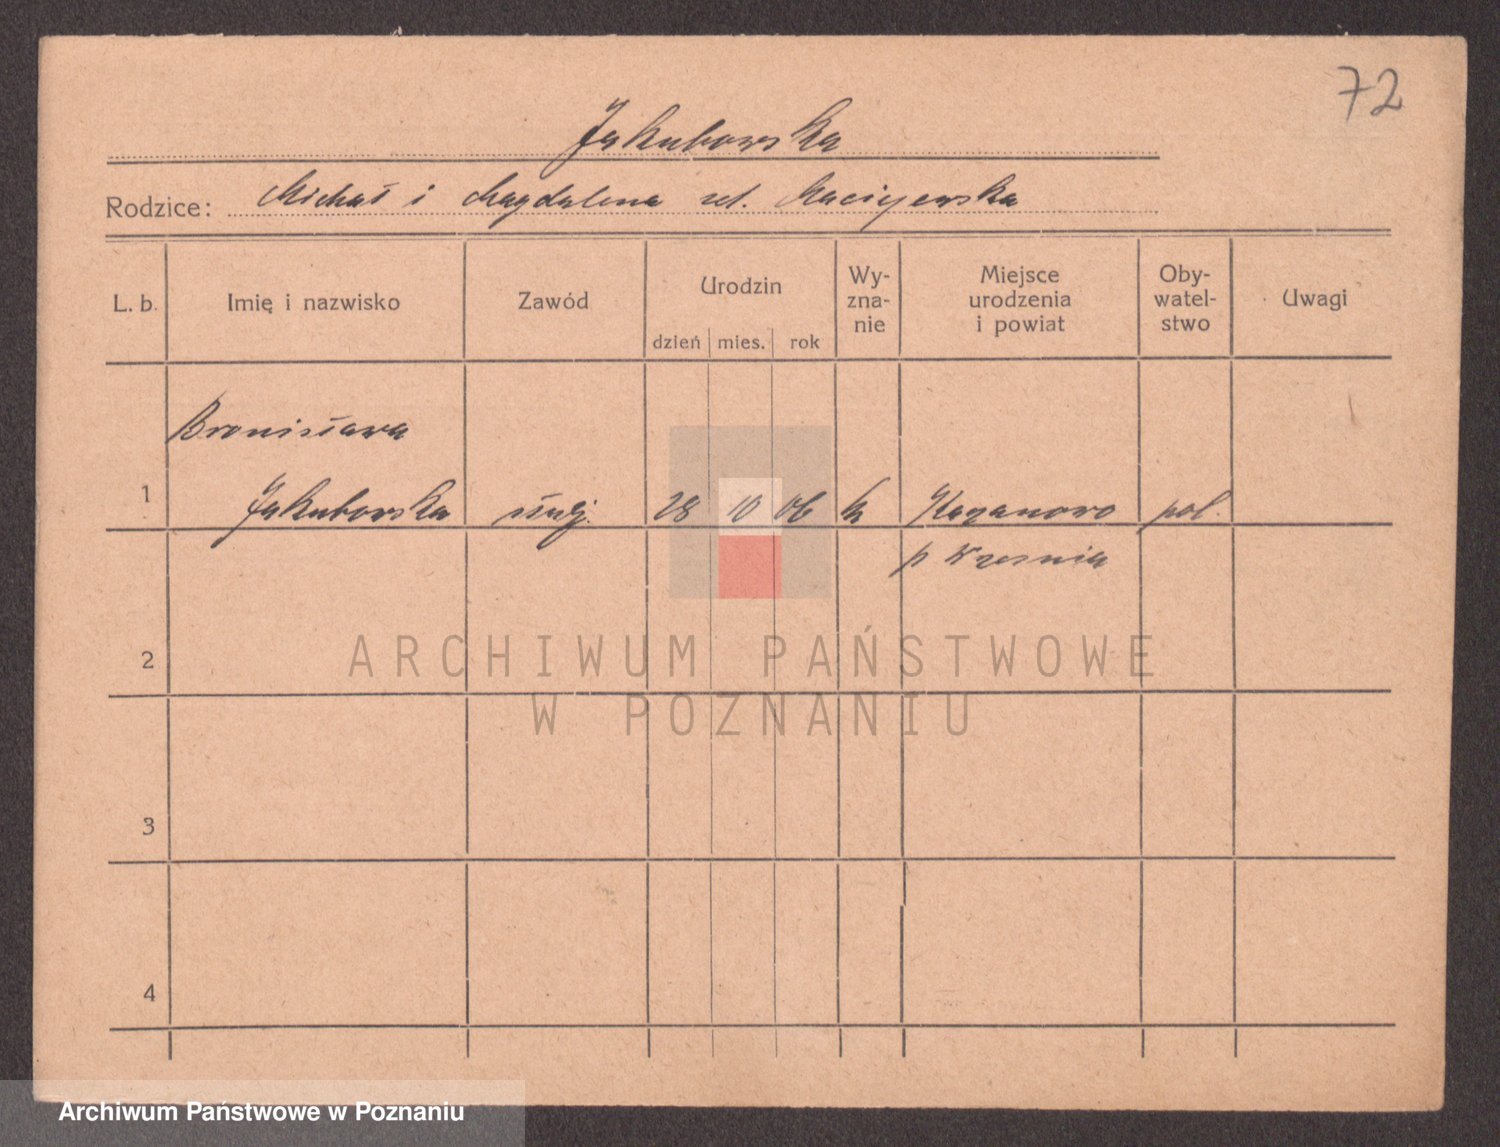 72
Jakubowska
Rodzice: Michał i Magdalena zd. Maciejewska
L. b. Imię i nazwisko Zawód Urodzin dzień mies. rok Wy-zna-nie Miejsce urodzenia i powiat Oby-watel-stwo Uwagi
Bronisława
1 Jakubowska służ. 28 10 06 k Kazanowo pol.
p Września
2
ARCHIWUM PAŃSTWOWE
W POZNANIU
3
4
Archiwum Państwowe w Poznaniu